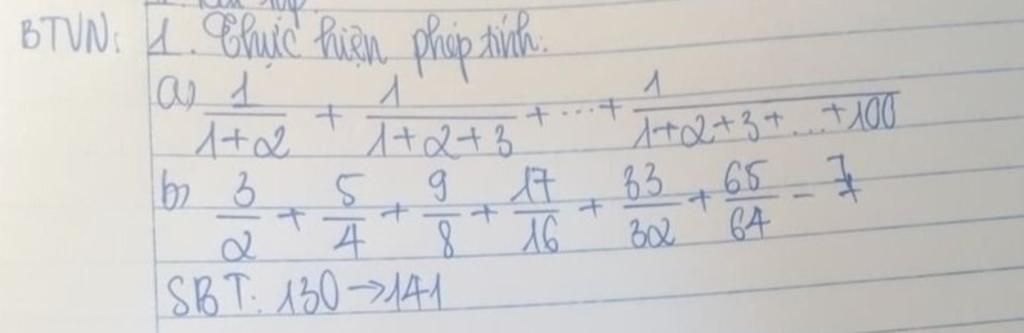 BTVN: 1. Thực hiện phép tính.
a) 1/(1+2) + 1/(1+2+3) + ... + 1/(1+2+3+...+100)
b) 3/2 + 5/4 + 9/8 + 17/16 + 33/32 + 65/64 - 7
SBT: 130 → 141